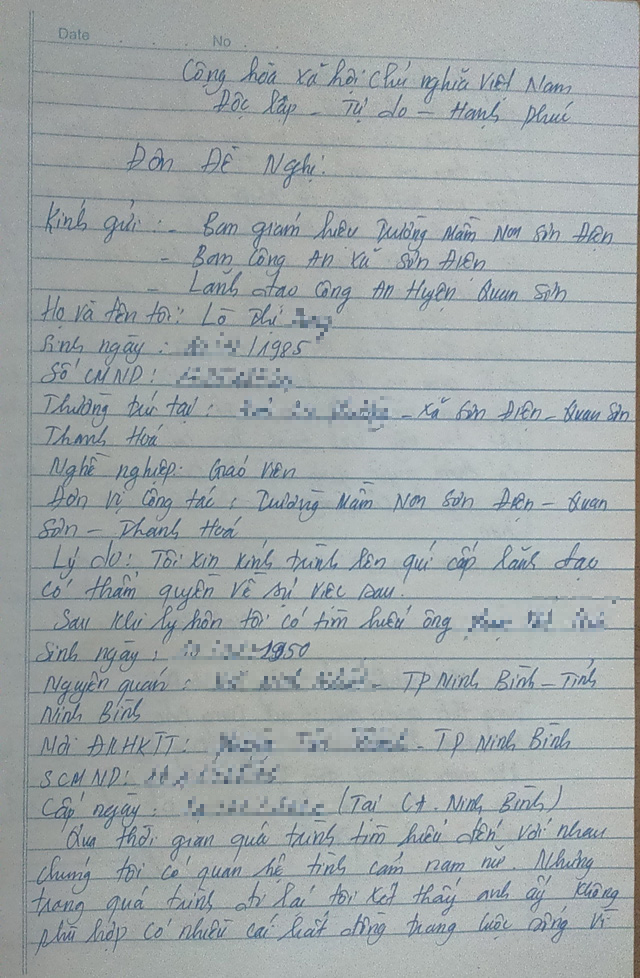 Date . . . . No . .
Cộng hòa xã hội chủ nghĩa Việt Nam
Độc lập - Tự do - Hạnh phúc
Đơn Đề Nghị.
Kính gửi : - Ban giám hiệu Trường Mầm Non Sơn Điện
- Ban Công An Xã Sơn Điện
- Lãnh đạo Công An Huyện Quan Sơn
Họ và tên tôi: Lò Thị
Sinh ngày : /1985
Số CMND:
Thường trú tại : - Xã Sơn Điện - Quan Sơn
Thanh Hoá
Nghề nghiệp: Giáo viên
Đơn vị công tác : Trường Mầm Non Sơn Điện - Quan
Sơn - Thanh Hoá
Lý do: Tôi xin kính trình lên quí cấp lãnh đạo
có thẩm quyền về sự việc sau.
Sau khi ly hôn tôi có tìm hiểu ông
Sinh ngày : 1950
Nguyên quán : - TP Ninh Bình - Tỉnh
Ninh Bình
Nơi ĐKHKTT: - TP Ninh Bình
SCMND:
Cấp ngày : (Tại CA. Ninh Bình)
Qua thời gian quá trình tìm hiểu đến với nhau
chúng tôi có quan hệ tình cảm nam nữ. Nhưng
trong quá trình đi lại tôi xét thấy anh ấy không
phù hợp có nhiều cái bất đồng trong cuộc sống vì